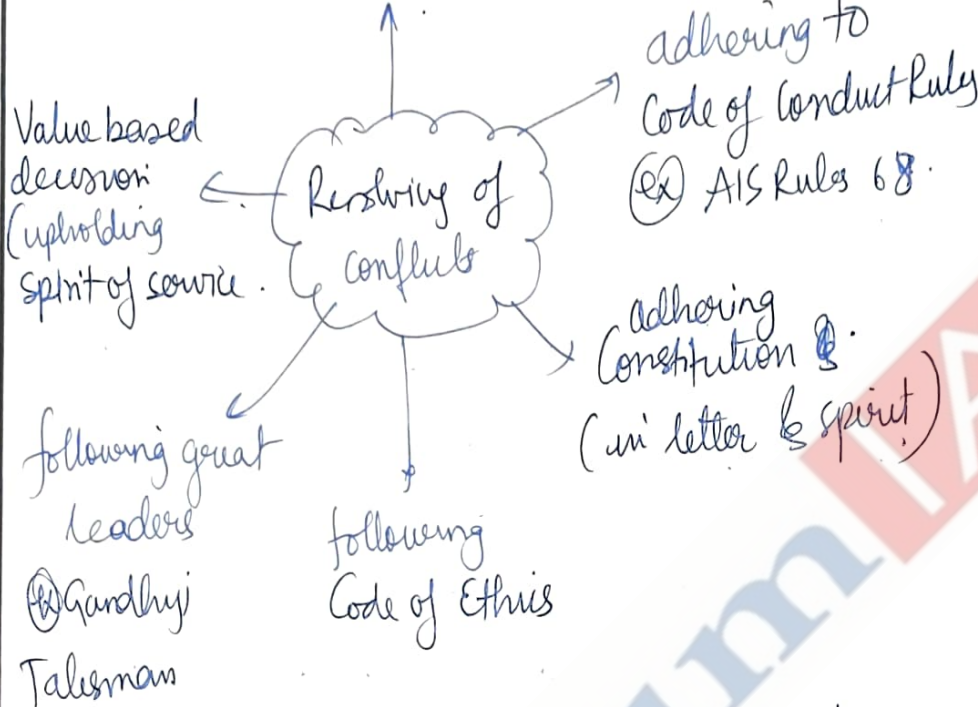 Resolving of
conflicts
adhering to
Code of Conduct Rules
(ex) AIS Rules 68.
adhering
Constitution
(in letter & spirit)
following
Code of Ethics
following great
leaders
(ex) Gandhiji
Talisman
Value based
decision
(upholding
spirit of service.